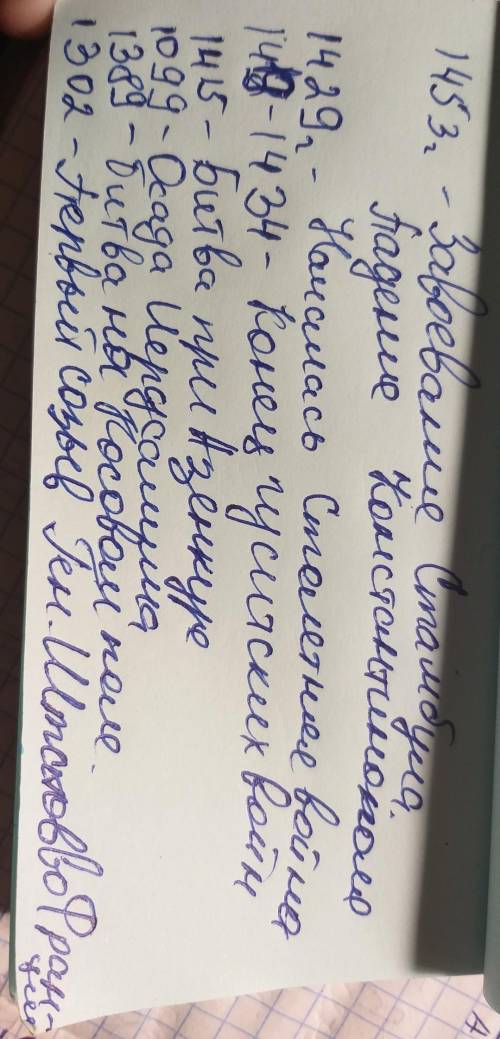 1453г - Завоевание Стамбула.
Падение Константинополя
1429г - Началась Столетняя война
1419-1434 - Конец гуситских войн
1415 - Битва при Азенкуре
1099 - Осада Иерусалима
1389 - Битва на Косовом поле.
1302 - Первый созыв Ген. Штатов во Фран-
ции